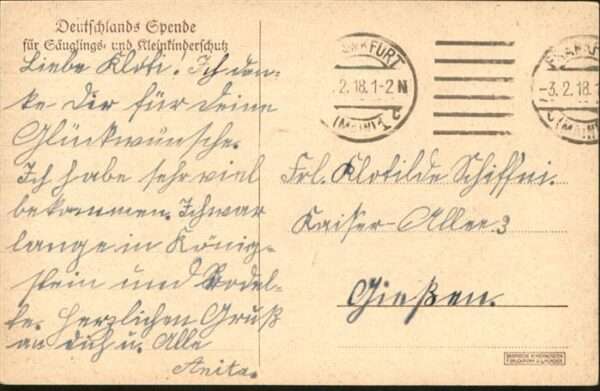 Deutschlands Spende
für Säuglings- und Kleinkinderschutz
Liebe Kloti! Ich dan-
ke Dir für Deine
Glückwünsche.
Ich habe sehr viel
bekommen. Ich war
lange in König-
stein und Rodel-
te. Herzlichen Gruß
an Dich u. Alle
Anita.
FRANKFURT
2.18.1-2 N
(MAIN) 1 c
FRANKFURT
-3.2.18.1
(MAIN)
Frl. Klotilde Schiffni.
Kaiser-Allee 3
Gießen.